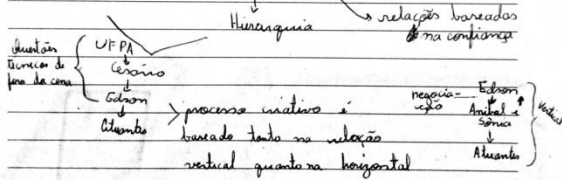 Hierarquia
relações baseadas
na confiança
Questões
técnicas de
fora da cena
UFPA
Cesário
Edson
Atuantes
processo criativo é
baseado tanto na relação
vertical quanto na horizontal
negocia-
ção
Edson
Anibal e
Sônia
Atuantes
Vertical